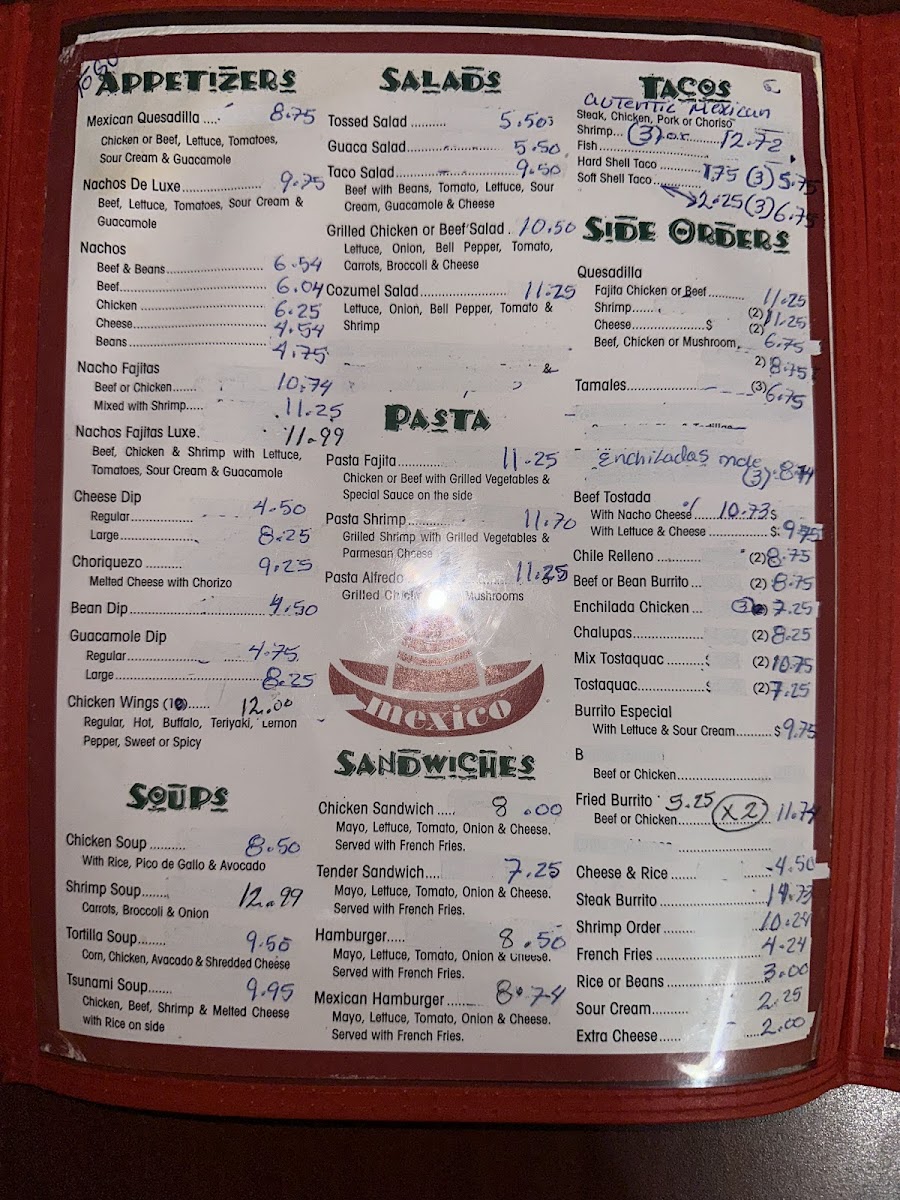 TOGO
APPETIZERS
Mexican Quesadilla .... 8.75
Chicken or Beef, Lettuce, Tomatoes,
Sour Cream & Guacamole
Nachos De Luxe .................. 9.75
Beef, Lettuce, Tomatoes, Sour Cream &
Guacamole
Nachos
Beef & Beans ........................ 6.54
Beef ........................ 6.04
Chicken ........................ 6.25
Cheese ........................ 4.54
Beans ........................ 4.75
Nacho Fajitas
Beef or Chicken ...... 10.74
Mixed with Shrimp..... 11.25
Nachos Fajitas Luxe. 11.99
Beef, Chicken & Shrimp with Lettuce,
Tomatoes, Sour Cream & Guacamole
Cheese Dip
Regular ........ 4.50
Large ........................ 8.25
Choriquezo .......... 9.25
Melted Cheese with Chorizo
Bean Dip ........................ 4.50
Guacamole Dip
Regular ........................ 4.75
Large ........................ 8.25
Chicken Wings (10)...... 12.00
Regular, Hot, Buffalo, Teriyaki, Lemon
Pepper, Sweet or Spicy
SOUPS
Chicken Soup .......... 8.50
With Rice, Pico de Gallo & Avocado
Shrimp Soup....... 12.99
Carrots, Broccoli & Onion
Tortilla Soup........ 9.50
Corn, Chicken, Avacado & Shredded Cheese
Tsunami Soup....... 9.95
Chicken, Beef, Shrimp & Melted Cheese
with Rice on side
SALADS
Tossed Salad .......... 5.50
Guaca Salad........................ 5.50
Taco Salad ........................ 9.50
Beef with Beans, Tomato, Lettuce, Sour
Cream, Guacamole & Cheese
Grilled Chicken or Beef Salad . 10.50
Lettuce, Onion, Bell Pepper, Tomato,
Carrots, Broccoli & Cheese
Cozumel Salad ........................ 11.25
Lettuce, Onion, Bell Pepper, Tomato &
Shrimp
&
PASTA
Pasta Fajita ........................ 11.25
Chicken or Beef with Grilled Vegetables &
Special Sauce on the side
Pasta Shrimp ........................ 11.70
Grilled Shrimp with Grilled Vegetables &
Parmesan Cheese
Pasta Alfredo ............ 11.25
Grilled Mushrooms
mexico
SANDWICHES
Chicken Sandwich ..... 8.00
Mayo, Lettuce, Tomato, Onion & Cheese.
Served with French Fries.
Tender Sandwich.... 7.25
Mayo, Lettuce, Tomato, Onion & Cheese.
Served with French Fries.
Hamburger..... 8.50
Mayo, Lettuce, Tomato, Onion & Cheese.
Served with French Fries.
Mexican Hamburger ........ 8.74
Mayo, Lettuce, Tomato, Onion & Cheese.
Served with French Fries.
TACOS
autentic Mexican
Steak, Chicken, Pork or Choriso
Shrimp... (3) 12.72
Fish ........................
Hard Shell Taco .......... 1.75 (3) 5.75
Soft Shell Taco .......... 2.25 (3) 6.75
SIDE ORDERS
Quesadilla
Fajita Chicken or Beef .......... 11.25
Shrimp...... (2) 11.25
Cheese ........................ $ (2) 6.75
Beef, Chicken or Mushroom. 2) 8.75
Tamales ............ (3) 6.75
Enchiladas mole
(3) 8.74
Beef Tostada
With Nacho Cheese 10.73 $
With Lettuce & Cheese ............... $ 9.75
Chile Relleno .......... (2) 8.75
Beef or Bean Burrito ... (2) 8.75
Enchilada Chicken ... 7.25
Chalupas.................... (2) 8.25
Mix Tostaquac .......... (2) 10.75
Tostaquac............... (2) 7.25
Burrito Especial
With Lettuce & Sour Cream.......... $ 9.75
B
Beef or Chicken........................
Fried Burrito 5.25 (x2) 11.74
Beef or Chicken...............
Cheese & Rice ...... 4.50
Steak Burrito ...................
Shrimp Order .......... 10.24
French Fries ............... 4.24
Rice or Beans ............... 3.00
Sour Cream............ 2.25
Extra Cheese...... 2.00